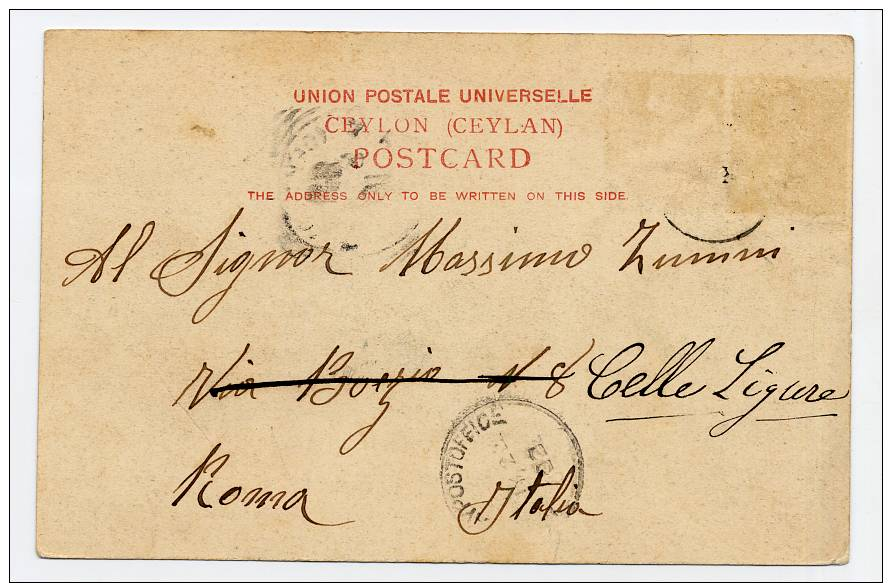 UNION POSTALE UNIVERSELLE
CEYLON (CEYLAN)
POSTCARD
THE ADDRESS ONLY TO BE WRITTEN ON THIS SIDE.
Al Signor Massimo Zunini
Via Boezio N 8 Celle Ligure
Roma Italia
POSTOFFICE